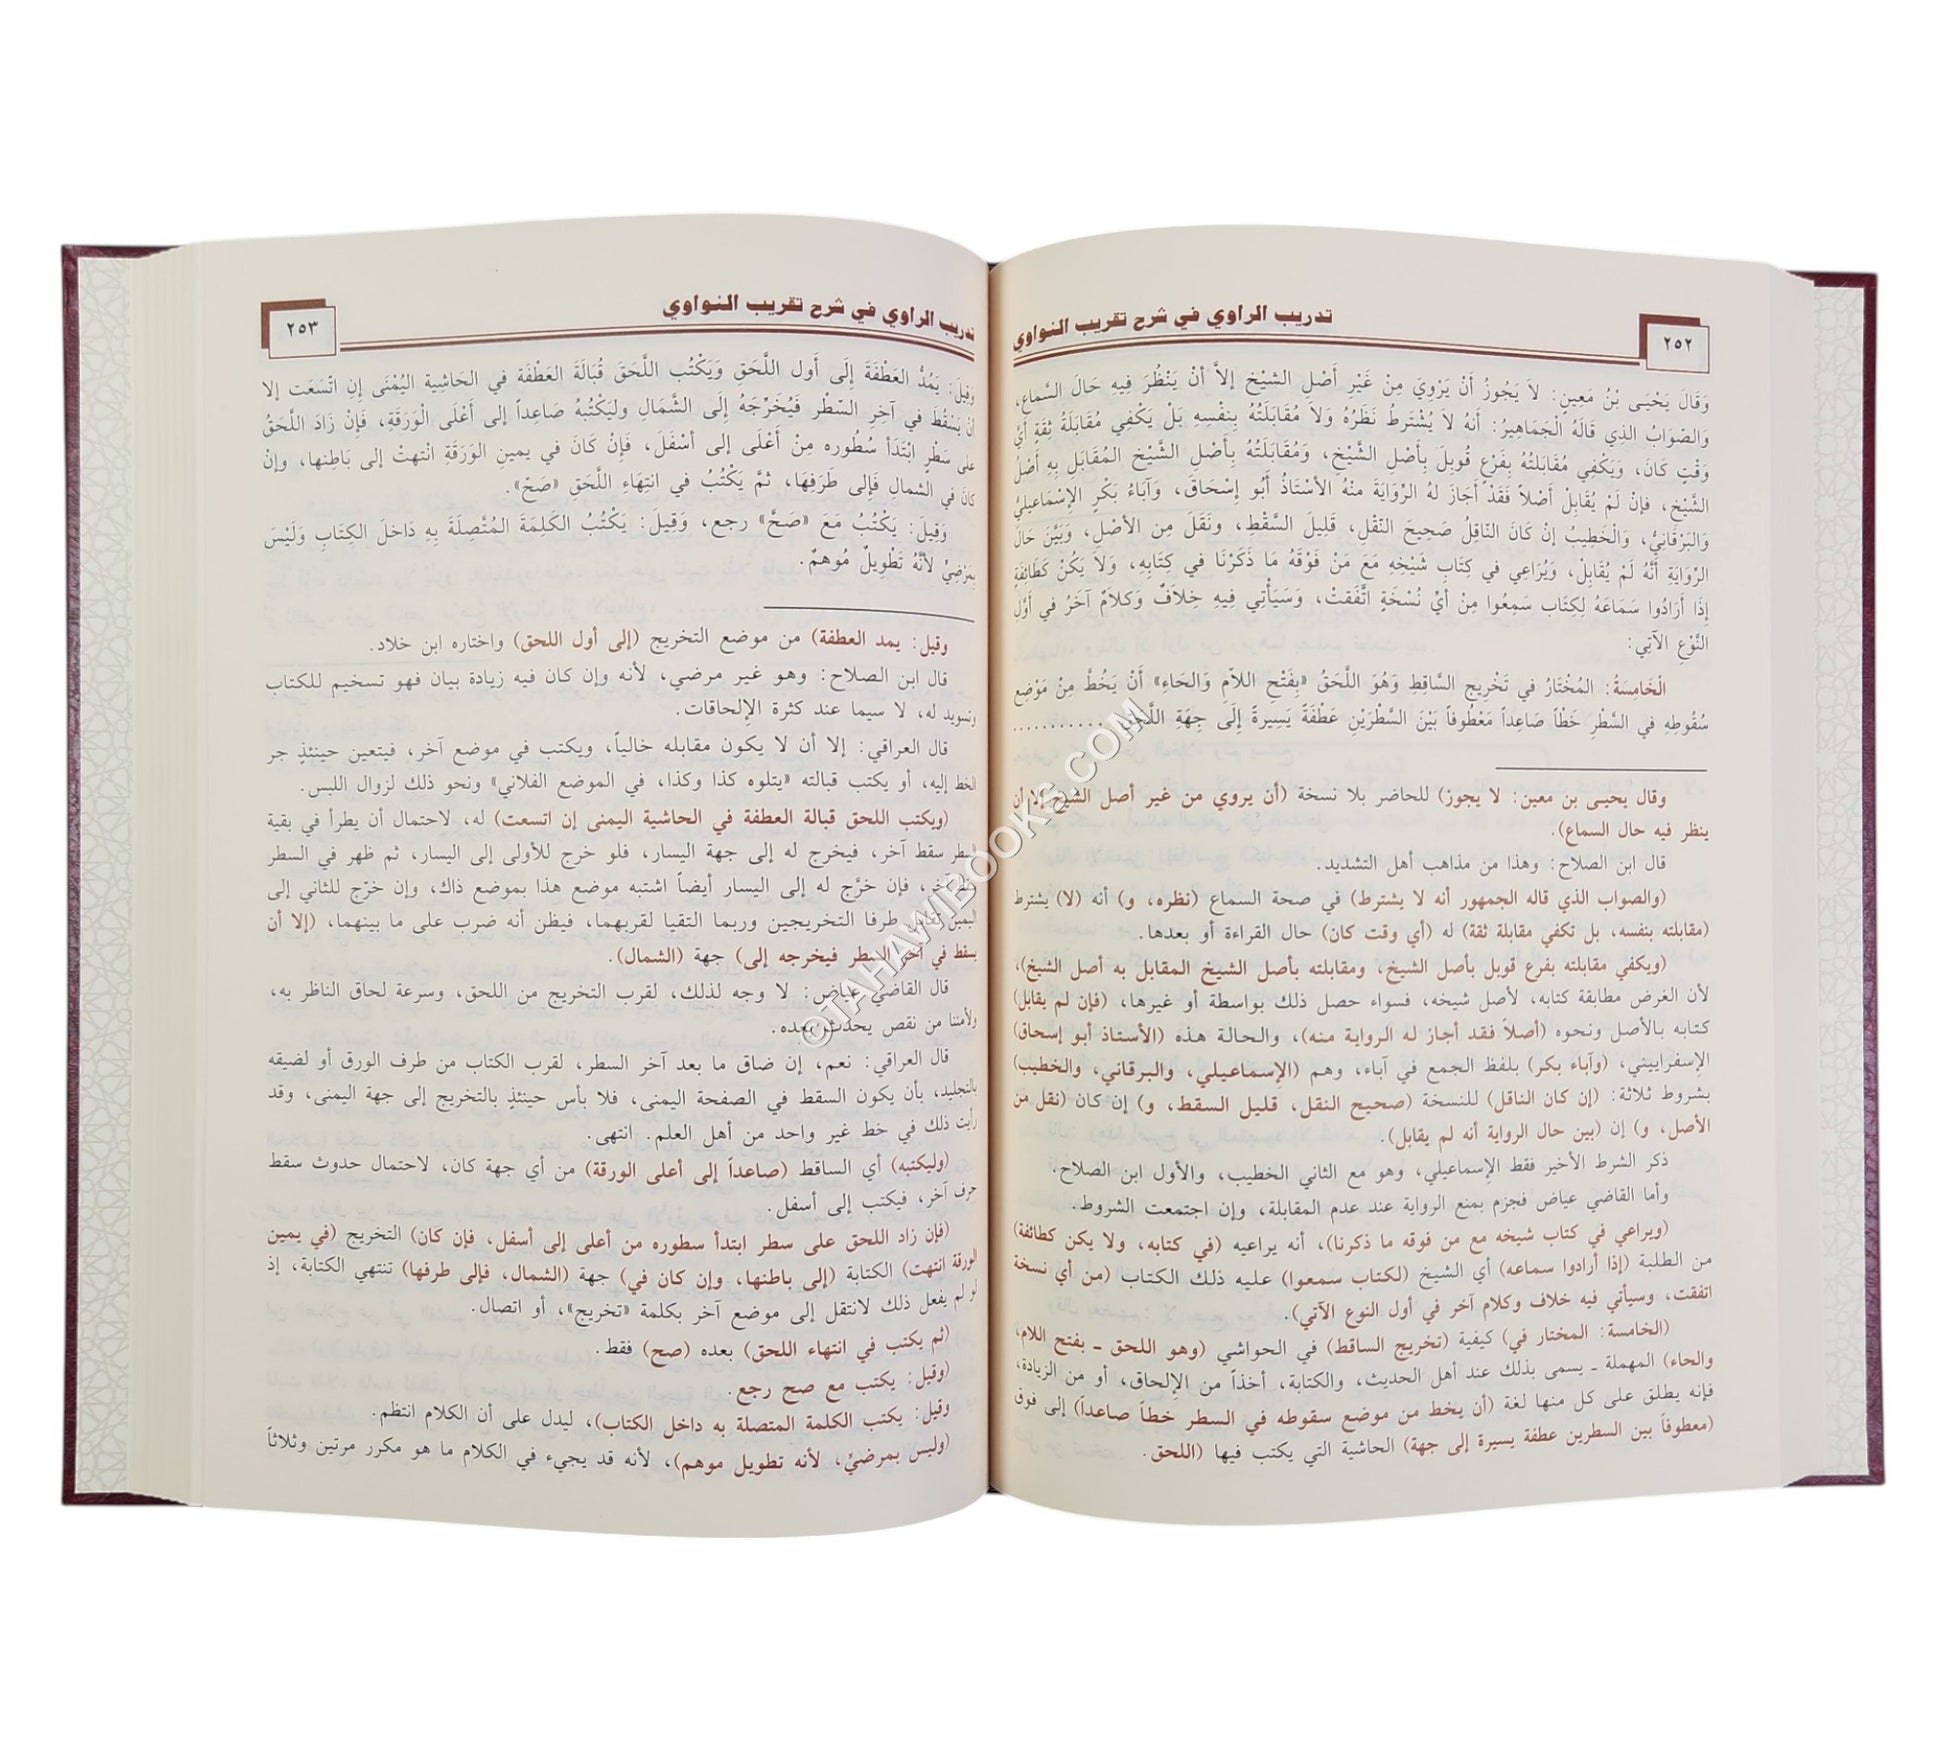 تدريب الراوي في شرح تقريب النواوي
٢٥٢
وَقَالَ يَحْيَـى بْنُ مَعِينٍ: لاَ يَجُوزُ أَنْ يَرْوِيَ مِنْ غَيْرِ أَصْلِ الشيْخِ إلاَّ أنْ يَنْظُرَ فِيهِ حَالَ السَّماعِ،
وَالصّوَابُ الذِي قَالَهُ الْجَمَاهِيرُ: أَنهُ لاَ يُشْتَرطُ نَظَرُهُ وَلاَ مُقَابَلَتُهُ بِنفْسِهِ بَلْ يَكْفِي مُقَابَلَةُ ثِقَةٍ أَيَّ
وَقْتٍ كَانَ، وَيَكْفِي مُقَابَلَتُهُ بِفَرْعٍ قُوبِلَ بِأَصْلِ الشَّيْخِ، وَمُقَابَلَتُهُ بِأَصْلِ الشَّيْخِ المُقَابَلِ بِهِ أَصْلُ
الشَّيْخِ، فإنْ لَمْ يُقَابِلْ أَصْلاً فَقَدْ أَجَازَ لهُ الرِّوَايَةَ منْهُ الأسْتَاذُ أَبُو إِسْحَاقَ، وَآبَاءُ بَكْرٍ الإِسْمَاعِيليُّ
وَالبَرْقَانِيُّ، وَالْخَطِيبُ إنْ كَانَ النّاقِلُ صَحِيحَ النّقْلِ، قَلِيلَ السَّقْطِ، ونَقَلَ مِن الأصْلِ، وَبَيَّنَ حَالَ
الرّوَايَةِ أنَّهُ لَمْ يُقَابِلْ، وَيُرَاعِي في كِتَابِ شَيْخِهِ مَعَ مَنْ فَوْقَهُ مَا ذَكَرْنَا في كِتَابِهِ، وَلاَ يَكُنْ كَطَائِفَةٍ
إذَا أَرَادُوا سَمَاعَهُ لِكِتَابٍ سَمِعُوا مِنْ أيِّ نُسْخَةٍ اتَّفَقَتْ، وَسَيَأْتِي فِيهِ خِلاَفٌ وَكَلاَمٌ آخَرُ في أوّلِ
النَّوْعِ الآتِي:
الْخَامِسَةُ: المُخْتَارُ في تَخْرِيجِ السَّاقِطِ وَهُوَ اللَّحَقُ «بِفَتْحِ اللاّمِ وَالحَاءِ» أَنْ يَخُطَّ مِنْ مَوْضِعِ
سُقُوطِهِ في السَّطْرِ خَطّاً صَاعِداً مَعْطُوفاً بَيْنَ السَّطْرَيْنِ عَطْفَةً يَسِيرةً إِلَى جِهَةِ اللَّحَقِ...........
وقال يحيـى بن معين: لا يجوز) للحاضر بلا نسخة (أن يروي من غير أصل الشيخ إلا أن
ينظر فيه حال السماع).
قال ابن الصلاح: وهذا من مذاهب أهل التشديد.
(والصواب الذي قاله الجمهور أنه لا يشترط) في صحة السماع (نظره، و) أنه (لا) يشترط
(مقابلته بنفسه، بل تكفي مقابلة ثقة) له (أي وقت كان) حال القراءة أو بعدها.
(ويكفي مقابلته بفرع قوبل بأصل الشيخ، ومقابلته بأصل الشيخ المقابل به أصل الشيخ)،
لأن الغرض مطابقة كتابه، لأصل شيخه، فسواء حصل ذلك بواسطة أو غيرها، (فإن لم يقابل)
كتابه بالأصل ونحوه (أصلاً فقد أجاز له الرواية منه)، والحالة هذه (الأستاذ أبو إسحاق)
الإسفراييني، (وآباء بكر) بلفظ الجمع في آباء، وهم (الإسماعيلي، والبرقاني، والخطيب)
بشروط ثلاثة: (إن كان الناقل) للنسخة (صحيح النقل، قليل السقط، و) إن كان (نقل من
الأصل، و) إن (بين حال الرواية أنه لم يقابل).
ذكر الشرط الأخير فقط الإسماعيلي، وهو مع الثاني الخطيب، والأول ابن الصلاح.
وأما القاضي عياض فجزم بمنع الرواية عند عدم المقابلة، وإن اجتمعت الشروط.
(ويراعي في كتاب شيخه مع من فوقه ما ذكرنا)، أنه يراعيه (في كتابه، ولا يكن كطائفة)
من الطلبة (إذا أرادوا سماعه) أي الشيخ (لكتاب سمعوا) عليه ذلك الكتاب (من أي نسخة
اتفقت، وسيأتي فيه خلاف وكلام آخر في أول النوع الآتي).
(الخامسة: المختار في) كيفية (تخريج الساقط) في الحواشي (وهو اللحق ـ بفتح اللام،
والحاء) المهملة ـ يسمى بذلك عند أهل الحديث، والكتابة، أخذاً من الإلحاق، أو من الزيادة،
فإنه يطلق على كل منها لغة (أن يخط من موضع سقوطه في السطر خطاً صاعداً) إلى فوق
(معطوفاً بين السطرين عطفة يسيرة إلى جهة) الحاشية التي يكتب فيها (اللحق.
تدريب الراوي في شرح تقريب النواوي
٢٥٣
وَقِيلَ: يَمُدُّ العَطْفَةَ إلَى أَول اللَّحَقِ وَيَكْتُب اللَّحَقَ قُبَالَةَ العَطْفَة في الحَاشِية اليُمْنَى إنِ اتّسَعَت إلا
أنْ يَسْقُطَ في آخِرِ السّطْر فَيُخَرِّجَهُ إلَى الشَّمَالِ وليَكْتُبْهُ صَاعِداً إلى أَعْلَى الْوَرَقَةِ، فَإنْ زَادَ اللَّحَقُ
على سَطْرٍ ابْتَدَأ سُطُوره مِنْ أعْلَى إلى أسْفَلَ، فَإنْ كَانَ في يمينِ الوَرَقَةِ انْتهتْ إلى بَاطِنها، وإنْ
كان في الشمالِ فَإلى طَرَفِهَا، ثمَّ يَكْتُبُ في انتِهَاءِ اللَّحَقِ «صَحّ».
وَقِيلَ: يَكْتُبُ مَعَ «صَحَّ» رجع، وَقِيلَ: يَكْتُبُ الكَلِمَةَ المُتَّصِلَةَ بِهِ دَاخلَ الكِتَابِ وَلَيْسَ
بِمَرْضِيٍّ لأنَّهُ تَطْوِيلٌ مُوهِمٌ.
وقيل: يمد العطفة) من موضع التخريج (إلى أول اللحق) واختاره ابن خلاد.
قال ابن الصلاح: وهو غير مرضي، لأنه وإن كان فيه زيادة بيان فهو تسخيم للكتاب
وتسويد له، لا سيما عند كثرة الإلحاقات.
قال العراقي: إلا أن لا يكون مقابله خالياً، ويكتب في موضع آخر، فيتعين حينئذٍ جر
الخط إليه، أو يكتب قبالته «يتلوه كذا وكذا، في الموضع الفلاني» ونحو ذلك لزوال اللبس.
(ويكتب اللحق قبالة العطفة في الحاشية اليمنى إن اتسعت) له، لاحتمال أن يطرأ في بقية
السطر سقط آخر، فيخرج له إلى جهة اليسار، فلو خرج للأولى إلى اليسار، ثم ظهر في السطر
سقط آخر، فإن خرَّج له إلى اليسار أيضاً اشتبه موضع هذا بموضع ذاك، وإن خرّج للثاني إلى
اليمين تقابل طرفا التخريجين وربما التقيا لقربهما، فيظن أنه ضرب على ما بينهما، (إلا أن
يسقط في آخر السطر فيخرجه إلى) جهة (الشمال).
قال القاضي عياض: لا وجه لذلك، لقرب التخريج من اللحق، وسرعة لحاق الناظر به،
ولأمننا من نقص يحدث بعده.
قال العراقي: نعم، إن ضاق ما بعد آخر السطر، لقرب الكتاب من طرف الورق أو لضيقه
بالتجليد، بأن يكون السقط في الصفحة اليمنى، فلا بأس حينئذٍ بالتخريج إلى جهة اليمنى، وقد
رأيت ذلك في خط غير واحد من أهل العلم. انتهى.
(وليكتبه) أي الساقط (صاعداً إلى أعلى الورقة) من أي جهة كان، لاحتمال حدوث سقط
حرف آخر، فيكتب إلى أسفل.
(فإن زاد اللحق على سطر ابتدأ سطوره من أعلى إلى أسفل، فإن كان) التخريج (في يمين
الورقة انتهت) الكتابة (إلى باطنها، وإن كان في) جهة (الشمال، فإلى طرفها) تنتهي الكتابة، إذ
لو لم يفعل ذلك لانتقل إلى موضع آخر بكلمة «تخريج»، أو اتصال.
(ثم يكتب في انتهاء اللحق) بعده (صح) فقط.
(وقيل: يكتب مع صح رجع.
وقيل: يكتب الكلمة المتصلة به داخل الكتاب)، ليدل على أن الكلام انتظم.
(وليس بمرضيٍّ، لأنه تطويل موهم)، لأنه قد يجيء في الكلام ما هو مكرر مرتين وثلاثاً
©TAHAWIBOOKS.COM